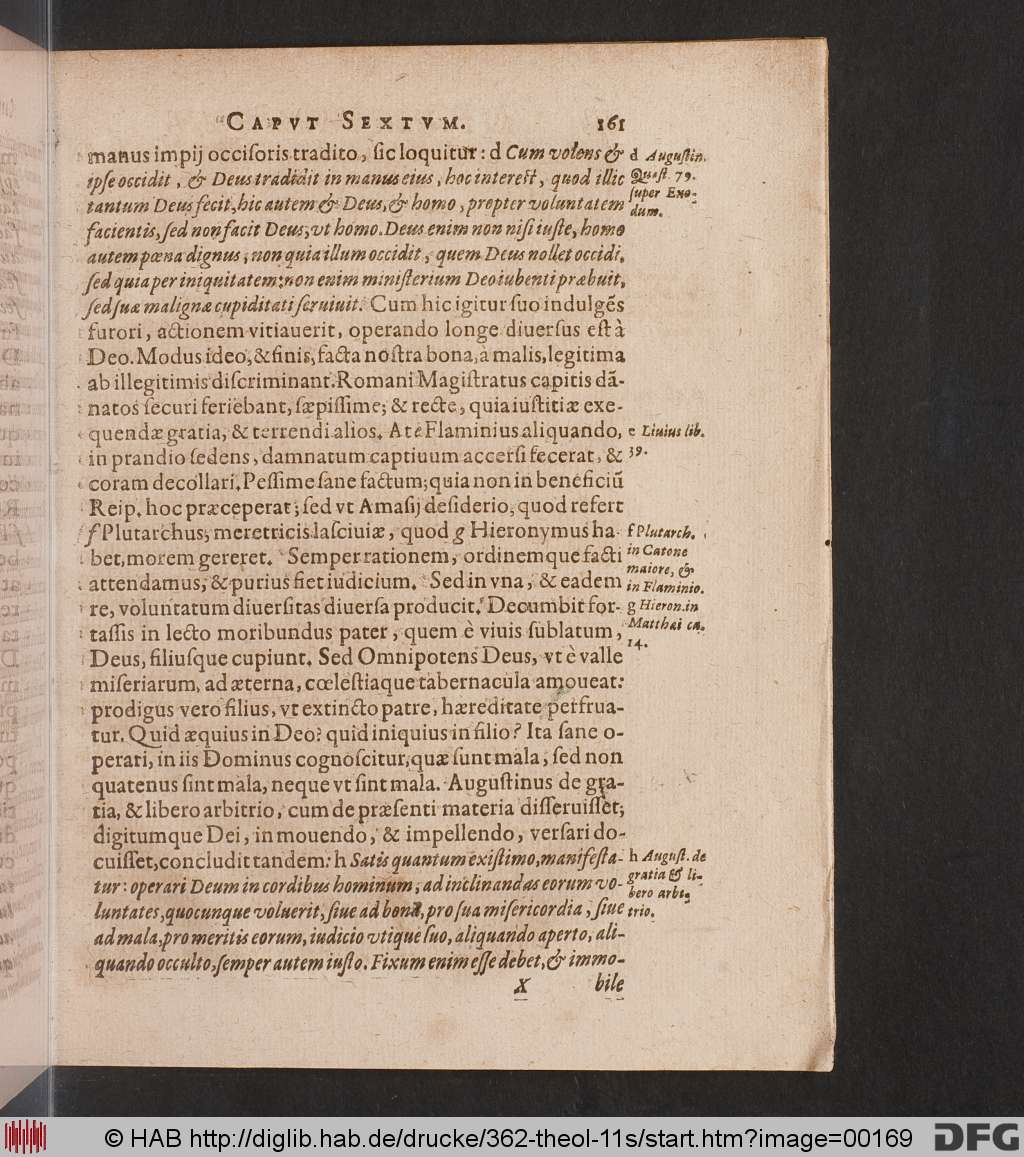 CAPVT SEXTVM. 161
manus impij occisoris tradito, sic loquitur: d Cum volens &
ipse occidit, & Deus tradidit in manus eius, hoc interest, quod illic
tantum Deus fecit, hic autem & Deus, & homo, propter voluntatem
facientis, sed non facit Deus, vt homo. Deus enim non nisi iuste, homo
autem pœna dignus, non quia illum occidit, quem Deus nollet occidi,
sed quia per iniquitatem: non enim ministerium Deo iubenti præbuit,
sed suæ malignæ cupiditati seruiuit. Cum hic igitur suo indulgẽs
furori, actionem vitiauerit, operando longe diuersus est à
Deo. Modus ideo, & finis, facta nostra bona, à malis, legitima
ab illegitimis discriminant. Romani Magistratus capitis dã-
natos securi feriebant, sæpissime; & recte, quia iustitiæ exe-
quendæ gratia, & terrendi alios. At e Flaminius aliquando,
in prandio sedens, damnatum captiuum accersi fecerat, &
coram decollari. Pessime sane factum; quia non in beneficiũ
Reip. hoc præceperat; sed vt Amasij desiderio, quod refert
f Plutarchus, meretricis lasciuiæ, quod g Hieronymus ha-
bet, morem gereret. Semper rationem, ordinemque facti
attendamus, & purius fiet iudicium. Sed in vna, & eadem
re, voluntatum diuersitas diuersa producit. Decumbit for-
tassis in lecto moribundus pater, quem è viuis sublatum,
Deus, filiusque cupiunt. Sed Omnipotens Deus, vt è valle
miseriarum, ad æterna, cœlestiaque tabernacula amoueat:
prodigus vero filius, vt extincto patre, hæreditate perfrua-
tur. Quid æquius in Deo? quid iniquius in filio? Ita sane o-
perari, in iis Dominus cognoscitur, quæ sunt mala, sed non
quatenus sint mala, neque vt sint mala. Augustinus de gra-
tia, & libero arbitrio, cum de præsenti materia disseruisset;
digitumque Dei, in mouendo, & impellendo, versari do-
cuisset, concludit tandem: h Satis quantum existimo, manifesta-
tur: operari Deum in cordibus hominum, ad inclinandas eorum vo-
luntates, quocunque voluerit, siue ad bona, pro sua misericordia, siue
ad mala, pro meritis eorum, iudicio vtique suo, aliquando aperto, ali-
quando occulto, semper autem iusto. Fixum enim esse debet, & immo-
X bile
d Augustin.
Quæst. 79.
super Exo-
dum.
e Liuius lib.
39.
f Plutarch.
in Catone
maiore, &
in Flaminio.
g Hieron. in
Matthæi ca.
14.
h August. de
gratia & li-
bero arbi-
trio.
© HAB http://diglib.hab.de/drucke/362-theol-11s/start.htm?image=00169
DFG